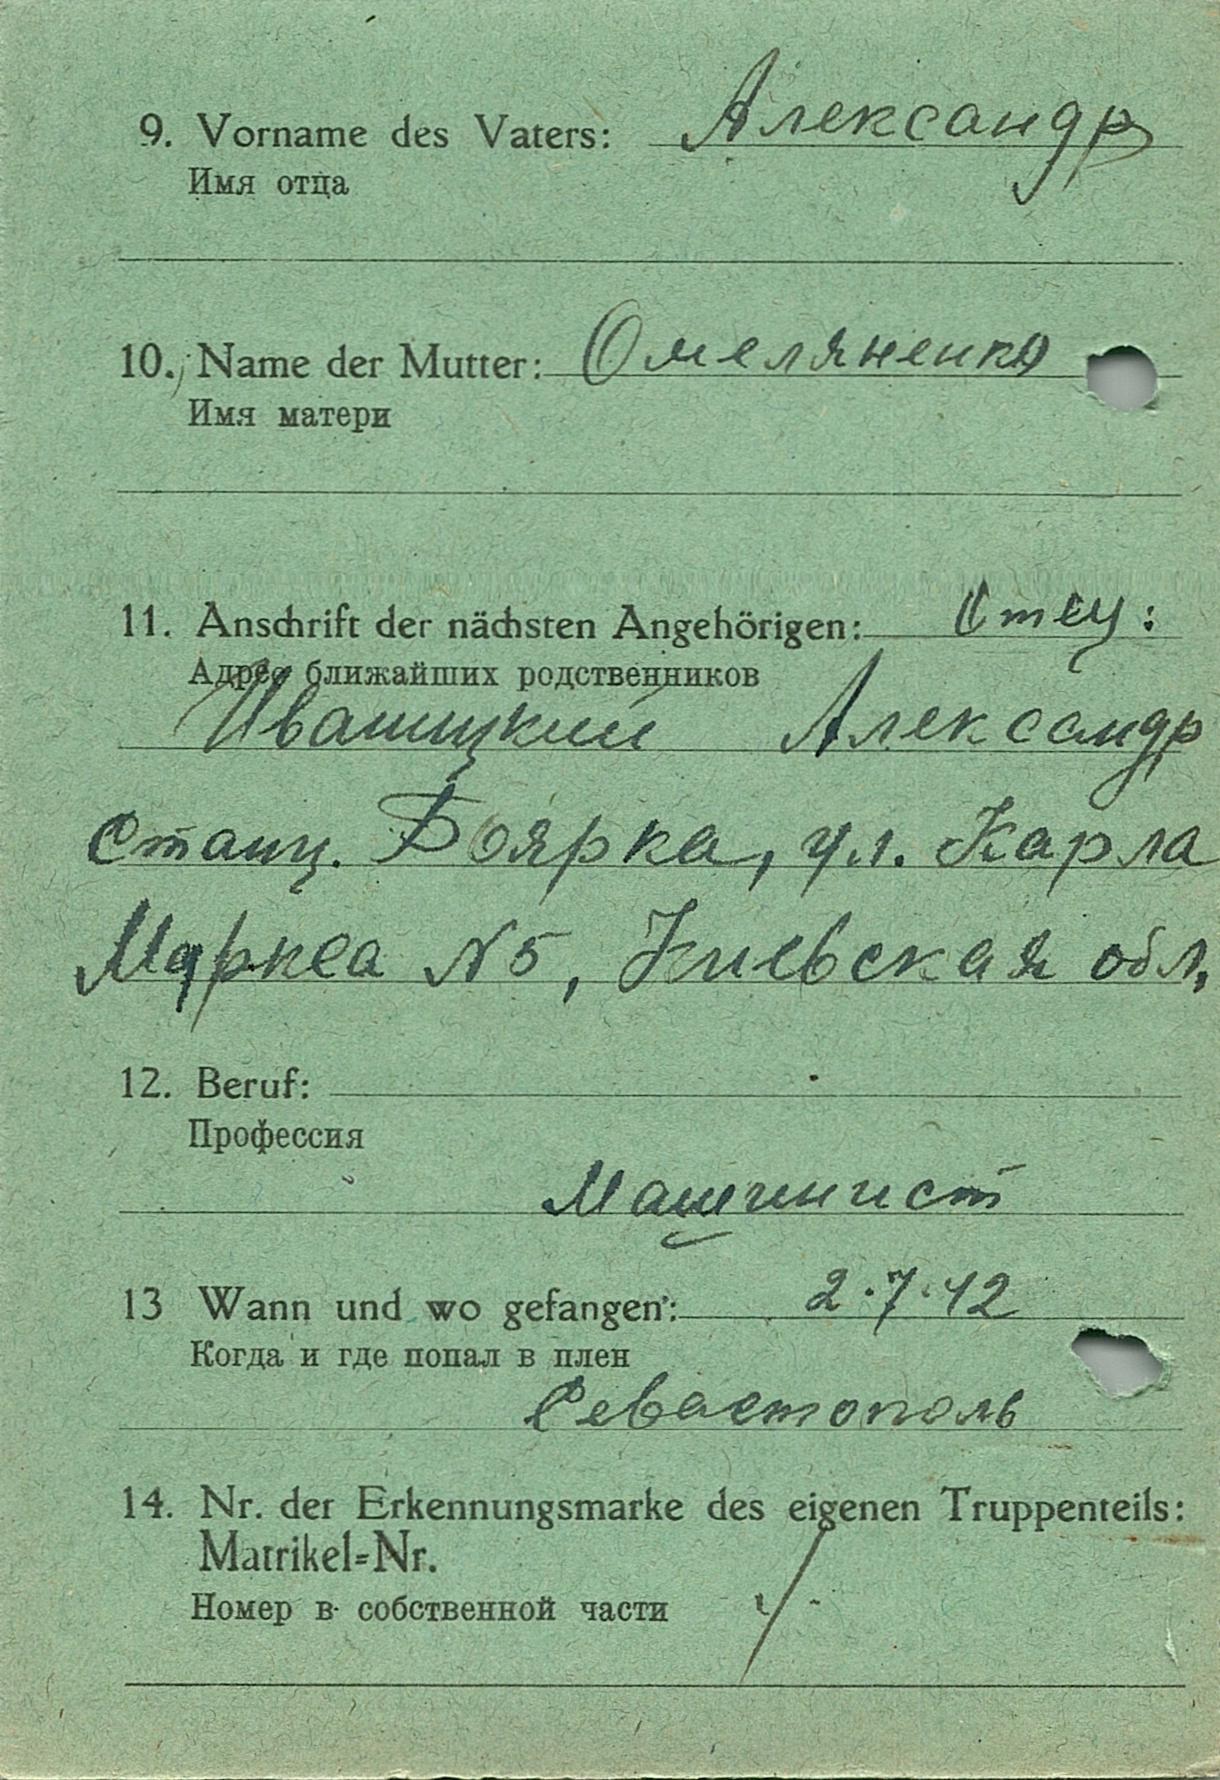 9. Vorname des Vaters: Александр
Имя отца
10. Name der Mutter: Омеляненко
Имя матери
11. Anschrift der nächsten Angehörigen: Отец:
Адрес ближайших родственников
Иваницкий Александр
станц. Боярка, ул. Карла
Маркса №5, Киевская обл.
12. Beruf:
Профессия
Машинист
13 Wann und wo gefangen: 2.7.42
Когда и где попал в плен
Севастополь
14. Nr. der Erkennungsmarke des eigenen Truppenteils:
Matrikel=Nr.
Номер в собственной части